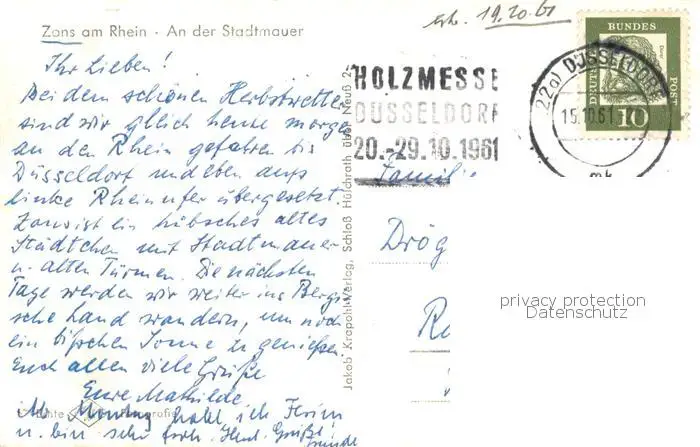 erh. 19.10.61
Zons am Rhein · An der Stadtmauer
Ihr Lieben!
Bei dem schönen Herbstwetter
sind wir gleich heute morgen
an den Rhein gefahren bis
Düsseldorf und eben aufs
linke Rheinufer übergesetzt.
Zons ist ein hübsches altes
Städtchen mit Stadtmauer
u. alten Türmen. Die nächsten
Tage werden wir weiter ins Bergi-
sche Land wandern, um noch
ein bißchen Sonne zu genießen
Euch allen viele Grüße
Eure Mathilde
Ab Montag habe ich Ferien
u. bin sehr froh. Herzl. Grüße
Echte Fotografie
Jakob Krapohl-Verlag, Schloß Hülchrath über Neuß 2
HOLZMESSE
DÜSSELDORF
20.-29.10.1961
(22a) DÜSSELDORF
15.10.61
mk
DEUTSCHE
BUNDES
POST
10
Famili
Drög
R
privacy protection
Datenschutz